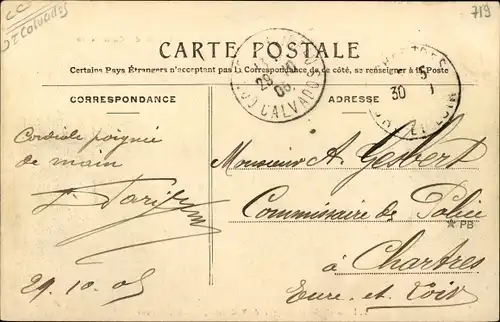 CC
Calvados
719
CARTE POSTALE
Certains Pays Étrangers n'acceptant pas la Correspondance de ce côté, se renseigner à la Poste
CORRESPONDANCE
ADRESSE
29 10
05
CALVADOS
30
ET LOIR
Cordiale poignée
de main
29.10.05
Monsieur A.
Commissaire de Police
PB
à Chartres
Eure-et-Loir